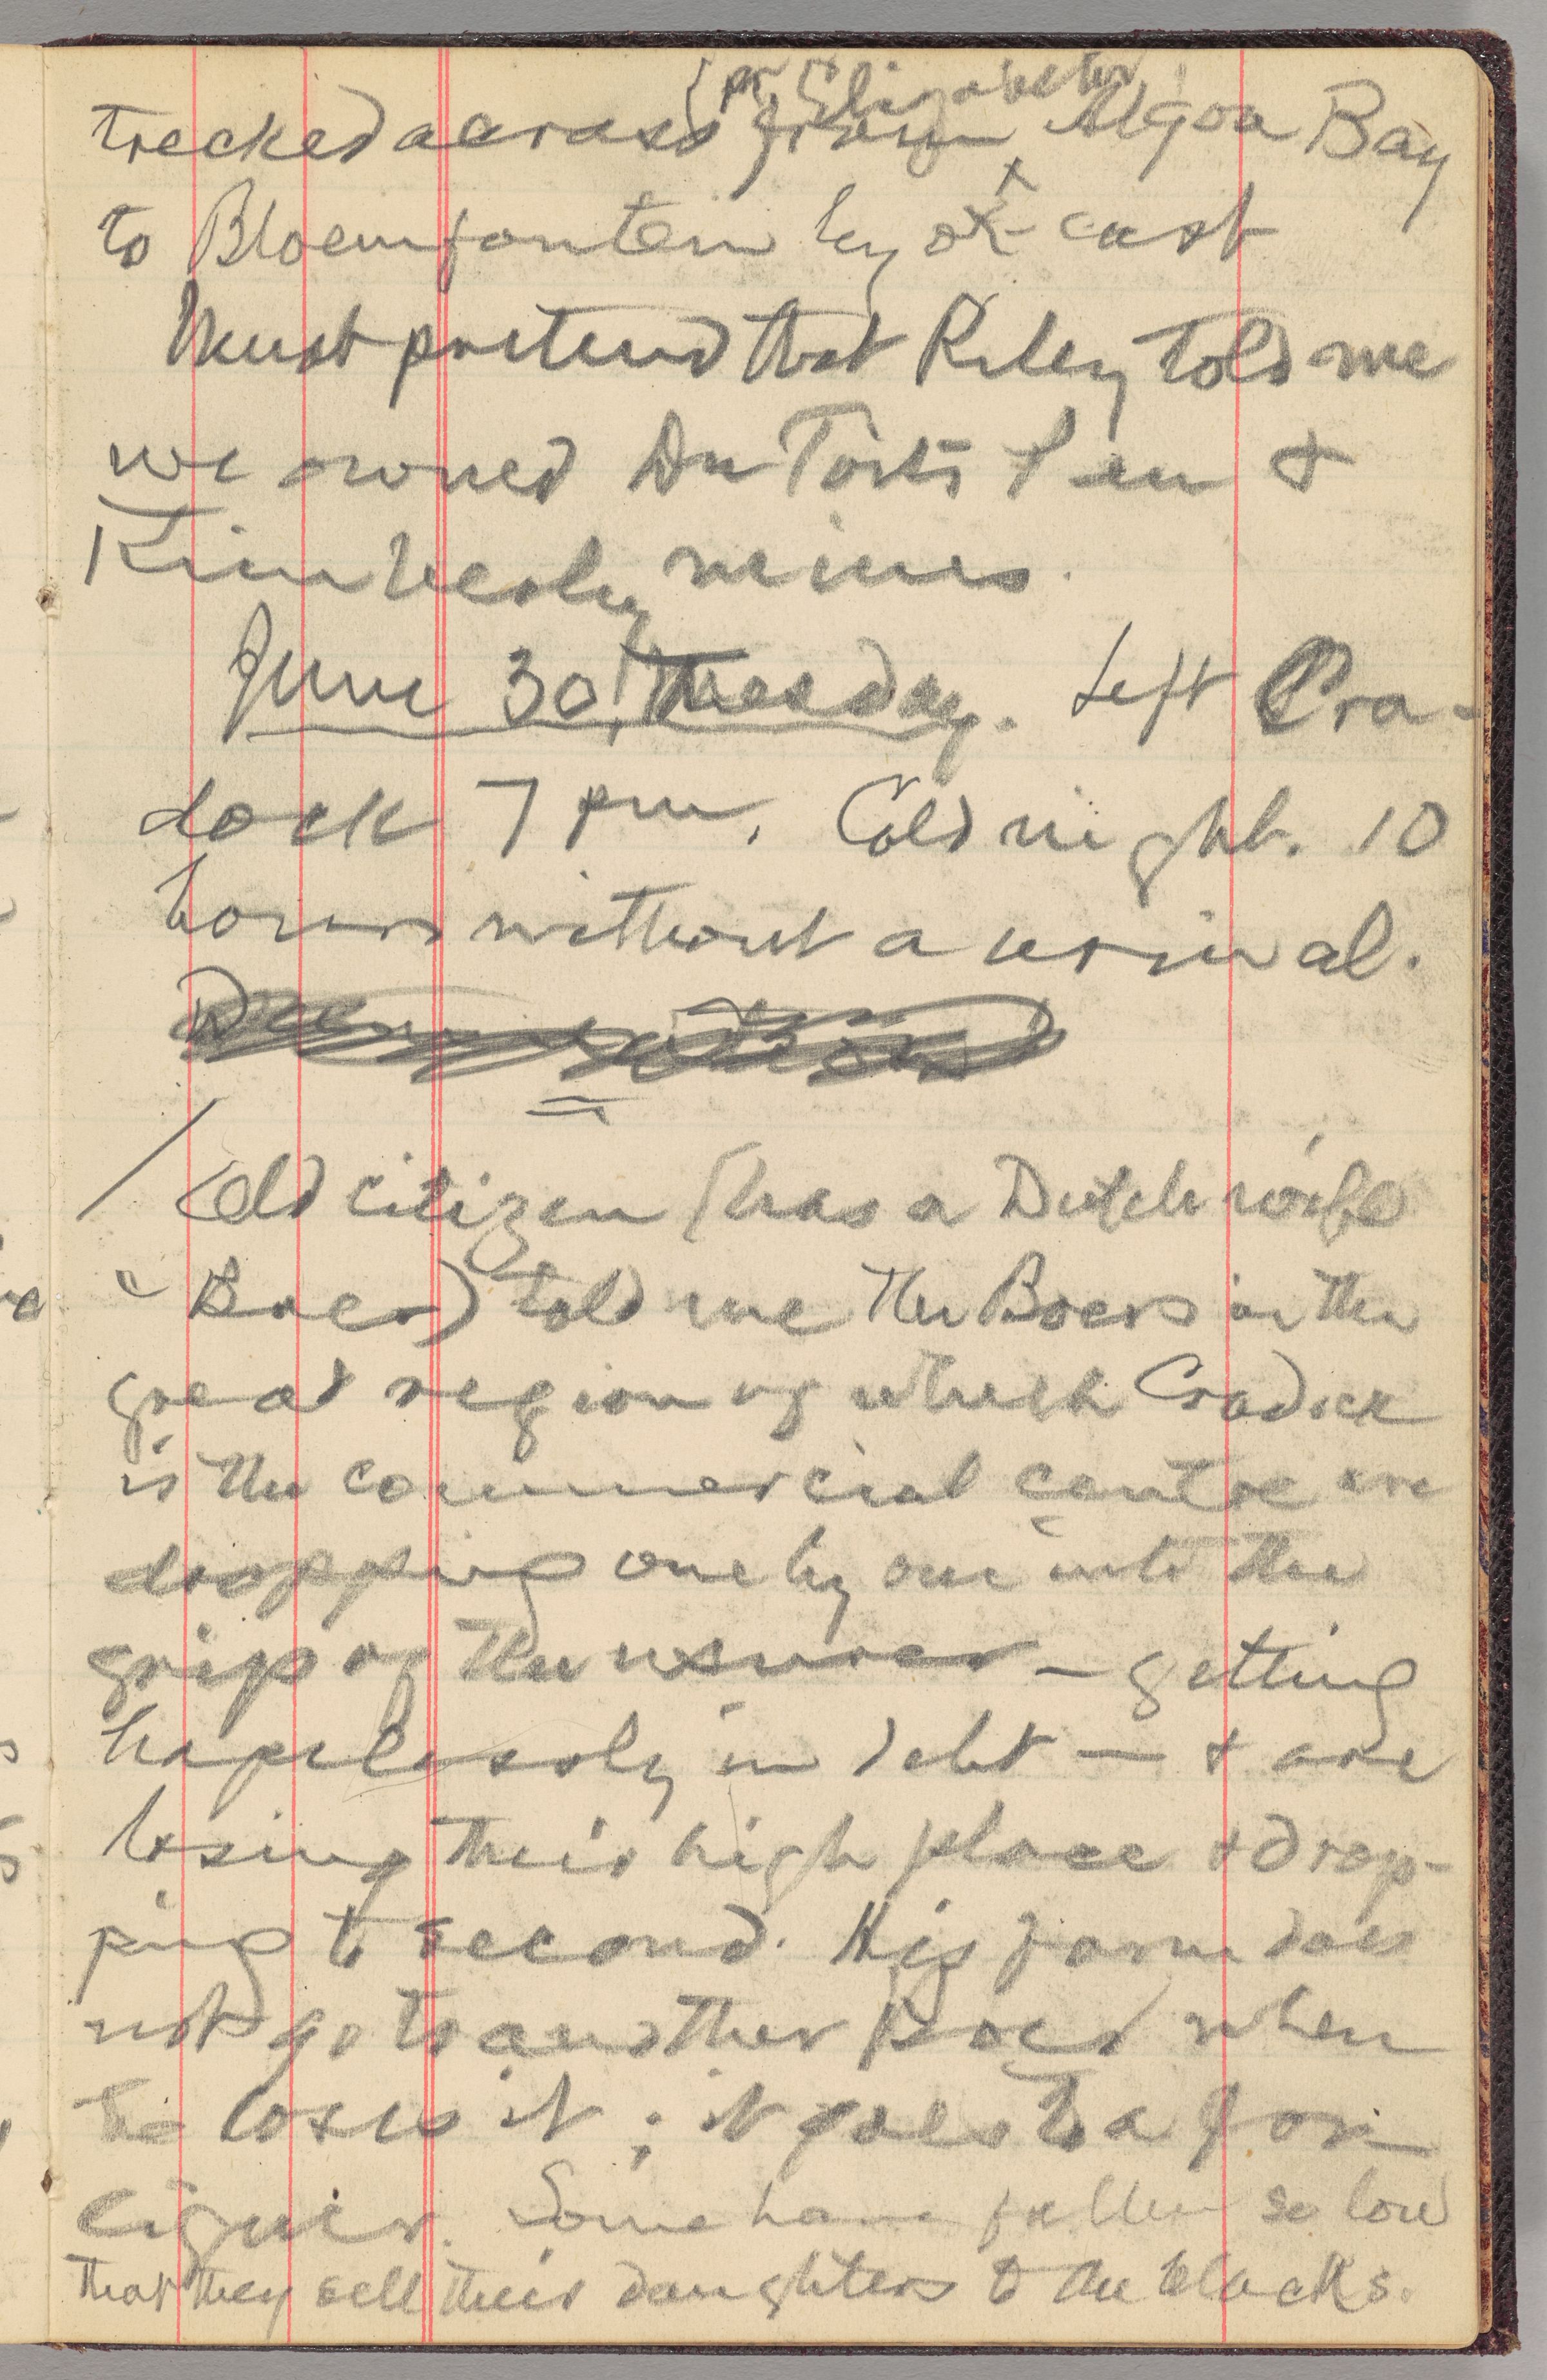 (pt Elizabeth
trecked across from Algoa Bay
to Bloemfontein by ox-cart
Must pretend that Riley told me
we owned Du Toits Pan &
Kimberly mines.
June 30, Tuesday. Left Cra-
dock 7 pm. Cold night. 10
hours without a urinal.
Old citizen (has a Dutch wife
Boer) told me the Boers in the
great region of which Cradock
is the commercial centre are
dropping one by one into the
grip of the usurer — getting
hopelessly in debt — & are
losing their high place & drop-
ping to second. His farm does
not go to another Boer when
he loses it; it goes to a for-
eigner. Some have fallen so low
that they sell their daughters to the blacks.